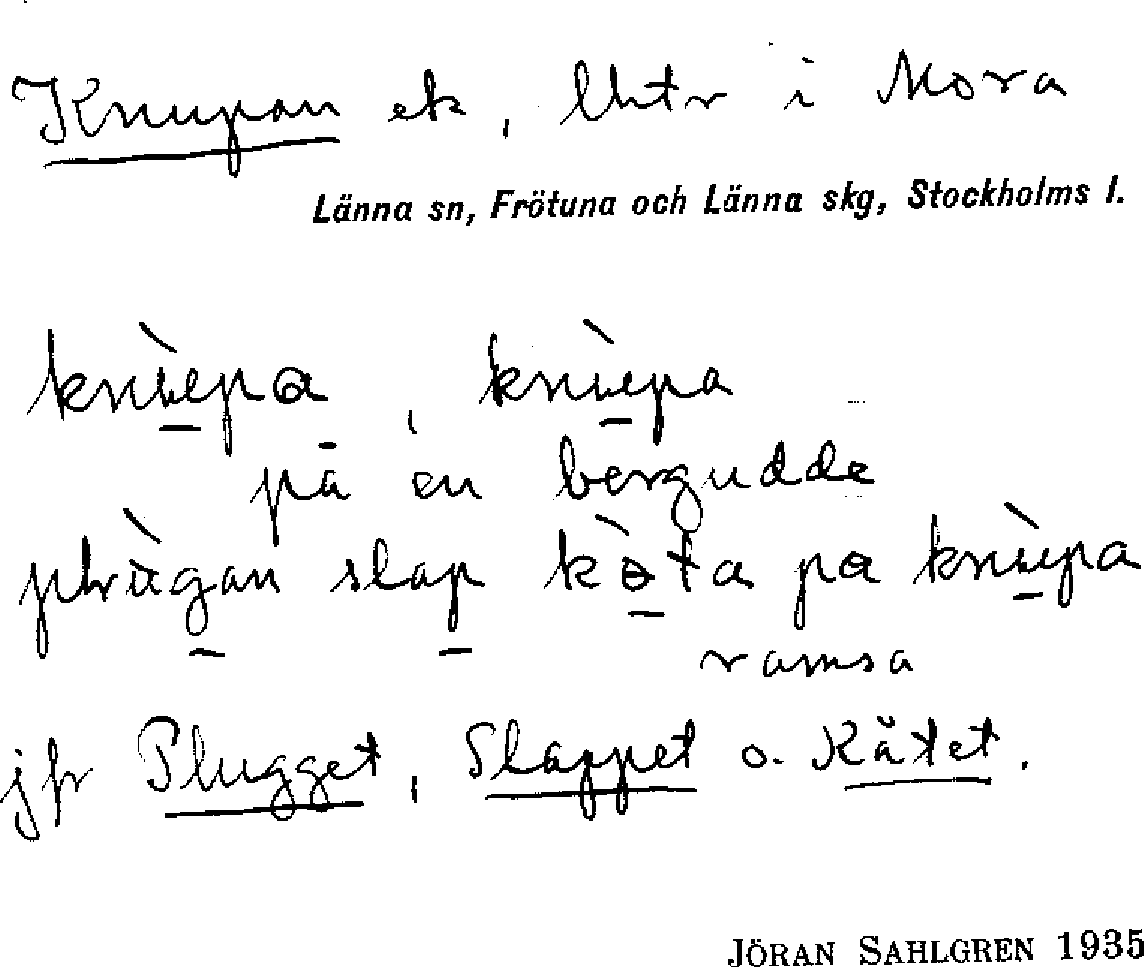 Knupan ek, lhtr i Mora
Länna sn, Frötuna och Länna skg, Stockholms l.
knùpa, knùpa
på en bergudde
slap kòta pa knùpa
ramsa
jfr Plugget, Slappet o. Kåtet.
JÖRAN SAHLGREN 1935